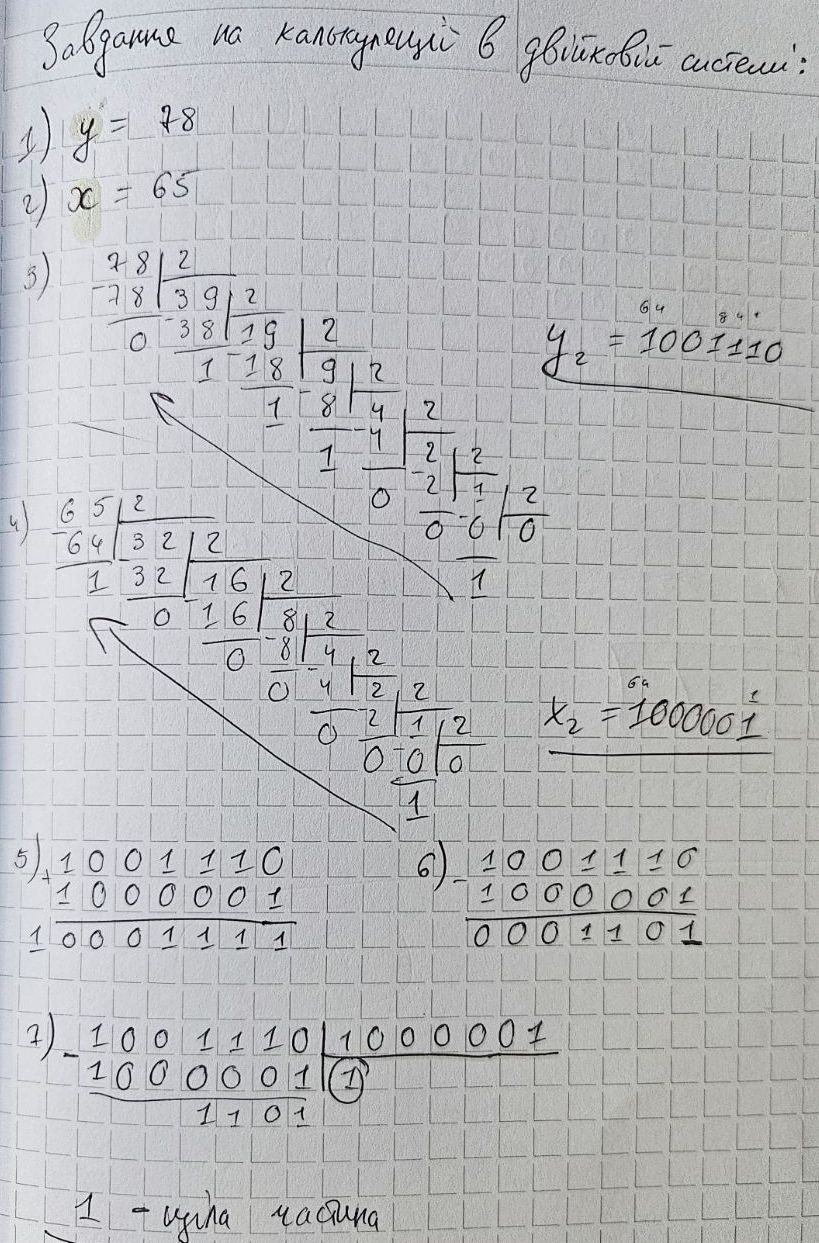 Завдання на калькуляції в двійковій системі:
1) y = 78
2) x = 65
3) 78 | 2
-78 | 39 | 2
0 -38 | 19 | 2
1 -18 | 9 | 2
1 -8 | 4 | 2
1 -4 | 2 | 2
0 -2 | 1 | 2
0 -0 | 0
1
64 8 4 *
y₂ = 1001110
4) 65 | 2
-64 | 32 | 2
1 32 | 16 | 2
0 -16 | 8 | 2
0 -8 | 4 | 2
0 -4 | 2 | 2
0 2 | 1 | 2
0 -0 | 0
1
64 1
x₂ = 1000001
5) + 1001110
1000001
10001111
6) - 1001110
1000001
0001101
7) - 1001110 | 1000001
1000001 | 1
1101
1 - ціла частина